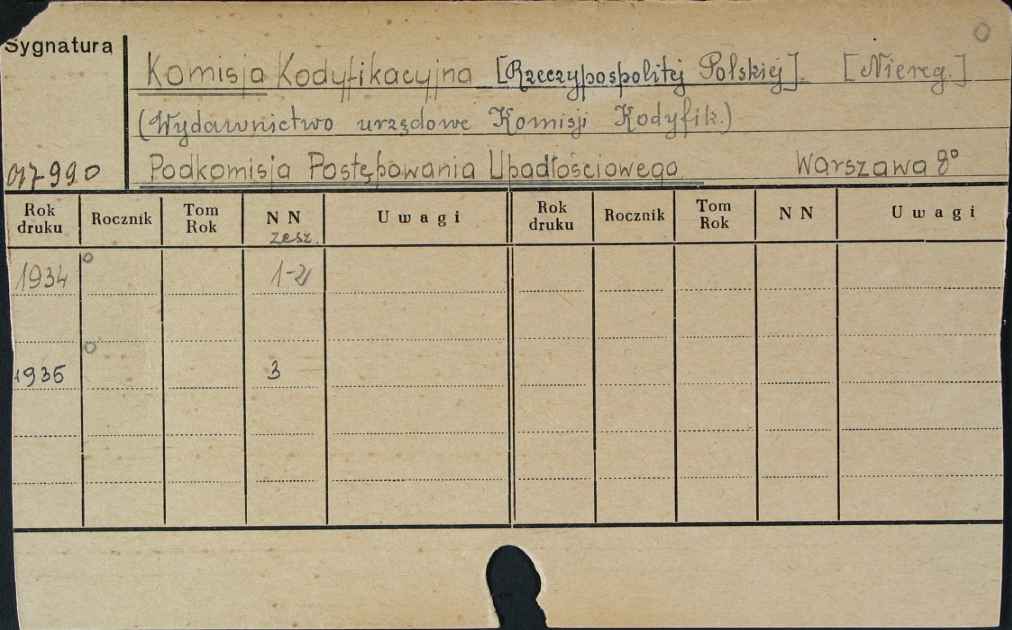 Sygnatura
Komisja Kodyfikacyjna [Rzeczypospolitej Polskiej]. [Niereg.]
(Wydawnictwo urzędowe Komisji Kodyfik.)
990 Podkomisja Postępowania Upadłościowego Warszawa 8°
Rok druku Rocznik Tom Rok N N zesz. Uwagi Rok druku Rocznik Tom Rok N N Uwagi
1934 1-2
1935 3